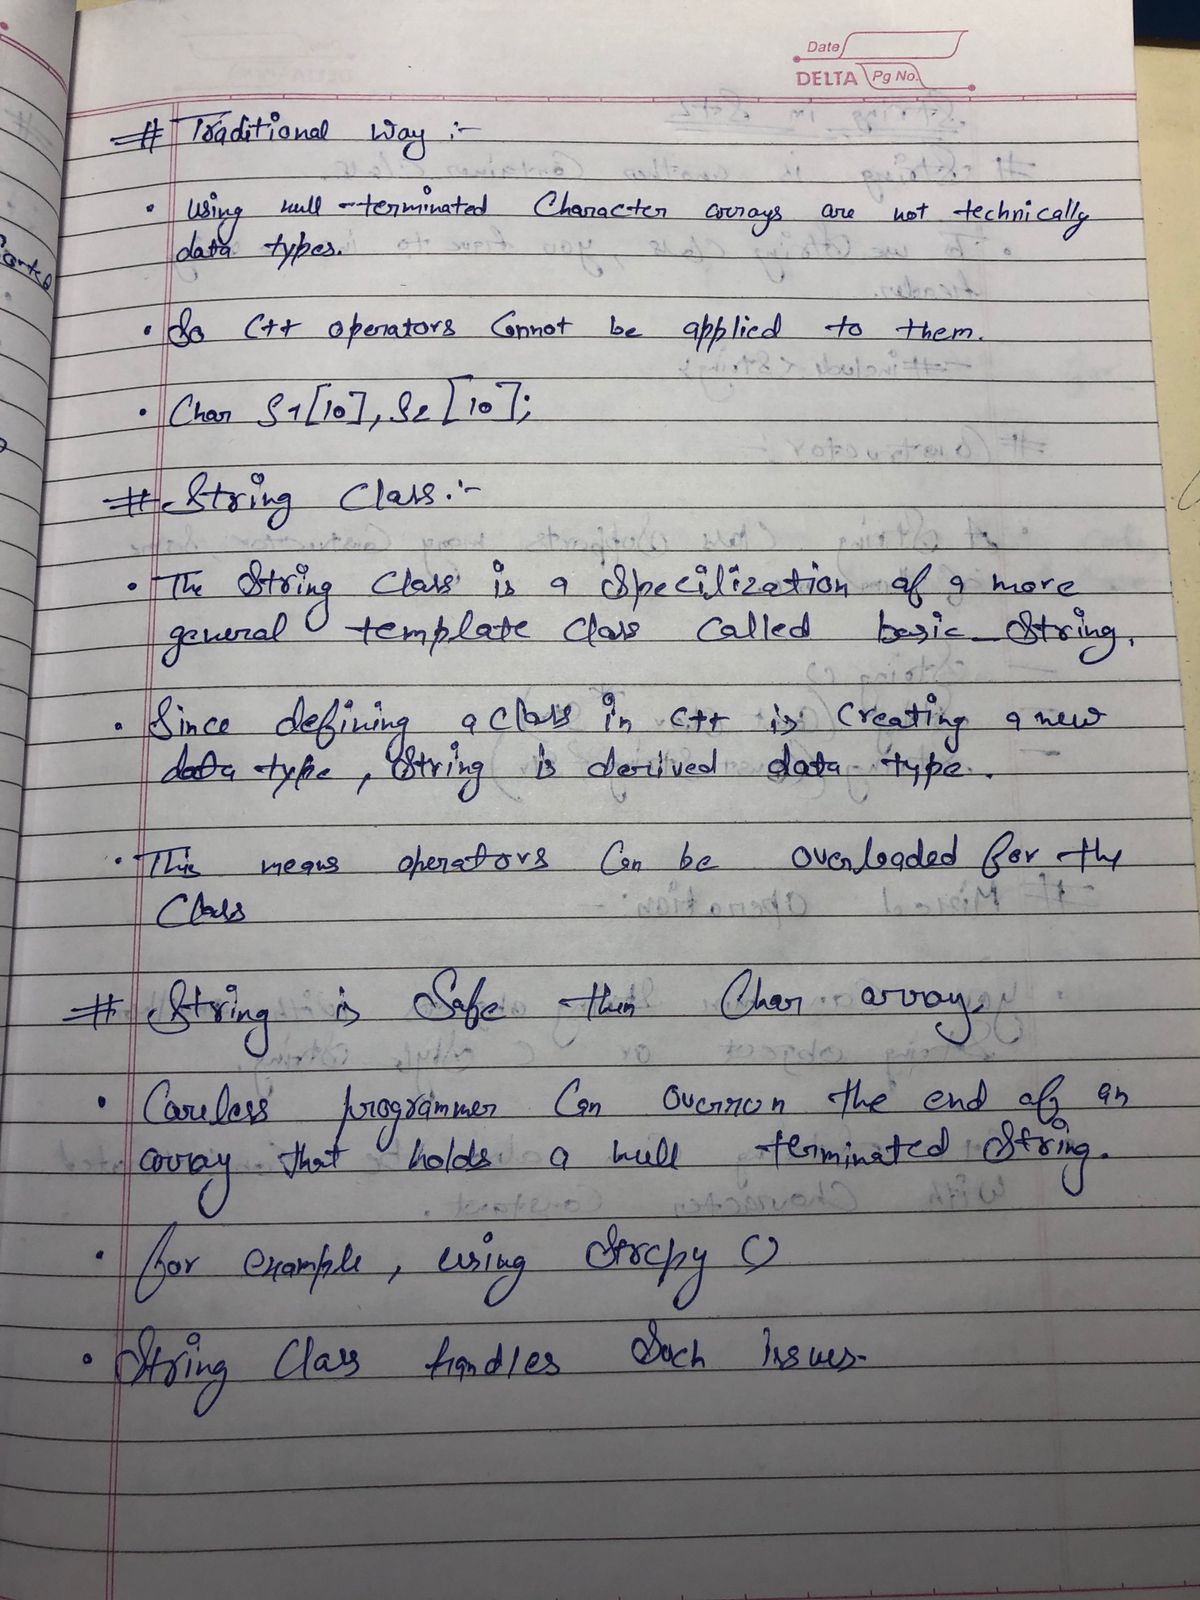 Date
DELTA Pg No.
# Traditional Way :-
• Using null-terminated Character arrays are not technically
data types.
• So C++ operators Cannot be applied to them.
• Char S1[10], S2[10];
# String Class :-
• The String Class is a Specilization of a more
general template Class Called basic_String.
• Since defining a Class in C++ is Creating a new
data type, String is derived data type.
• This means operators Can be overloaded for the
Class
# String is Safe then Char array.
• Careless programmer Can overrun the end of an
array that holds a null terminated String.
• for example, using Strcpy ()
• String Class handles Such issues.